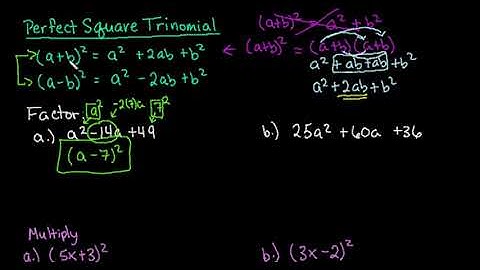 Perfect Square Trinomial
(a+b)² = a² + 2ab + b²
(a-b)² = a² - 2ab + b²
(a+b)² = a² + b²
← (a+b)² = (a+b)(a+b)
a² + ab + ab + b²
a² + 2ab + b²
Factor.
a² -2(7)a 7²
a.) a² - 14a + 49
(a - 7)²
b.) 25a² + 60a + 36
Multiply
a.) (5x+3)²
b.) (3x-2)²